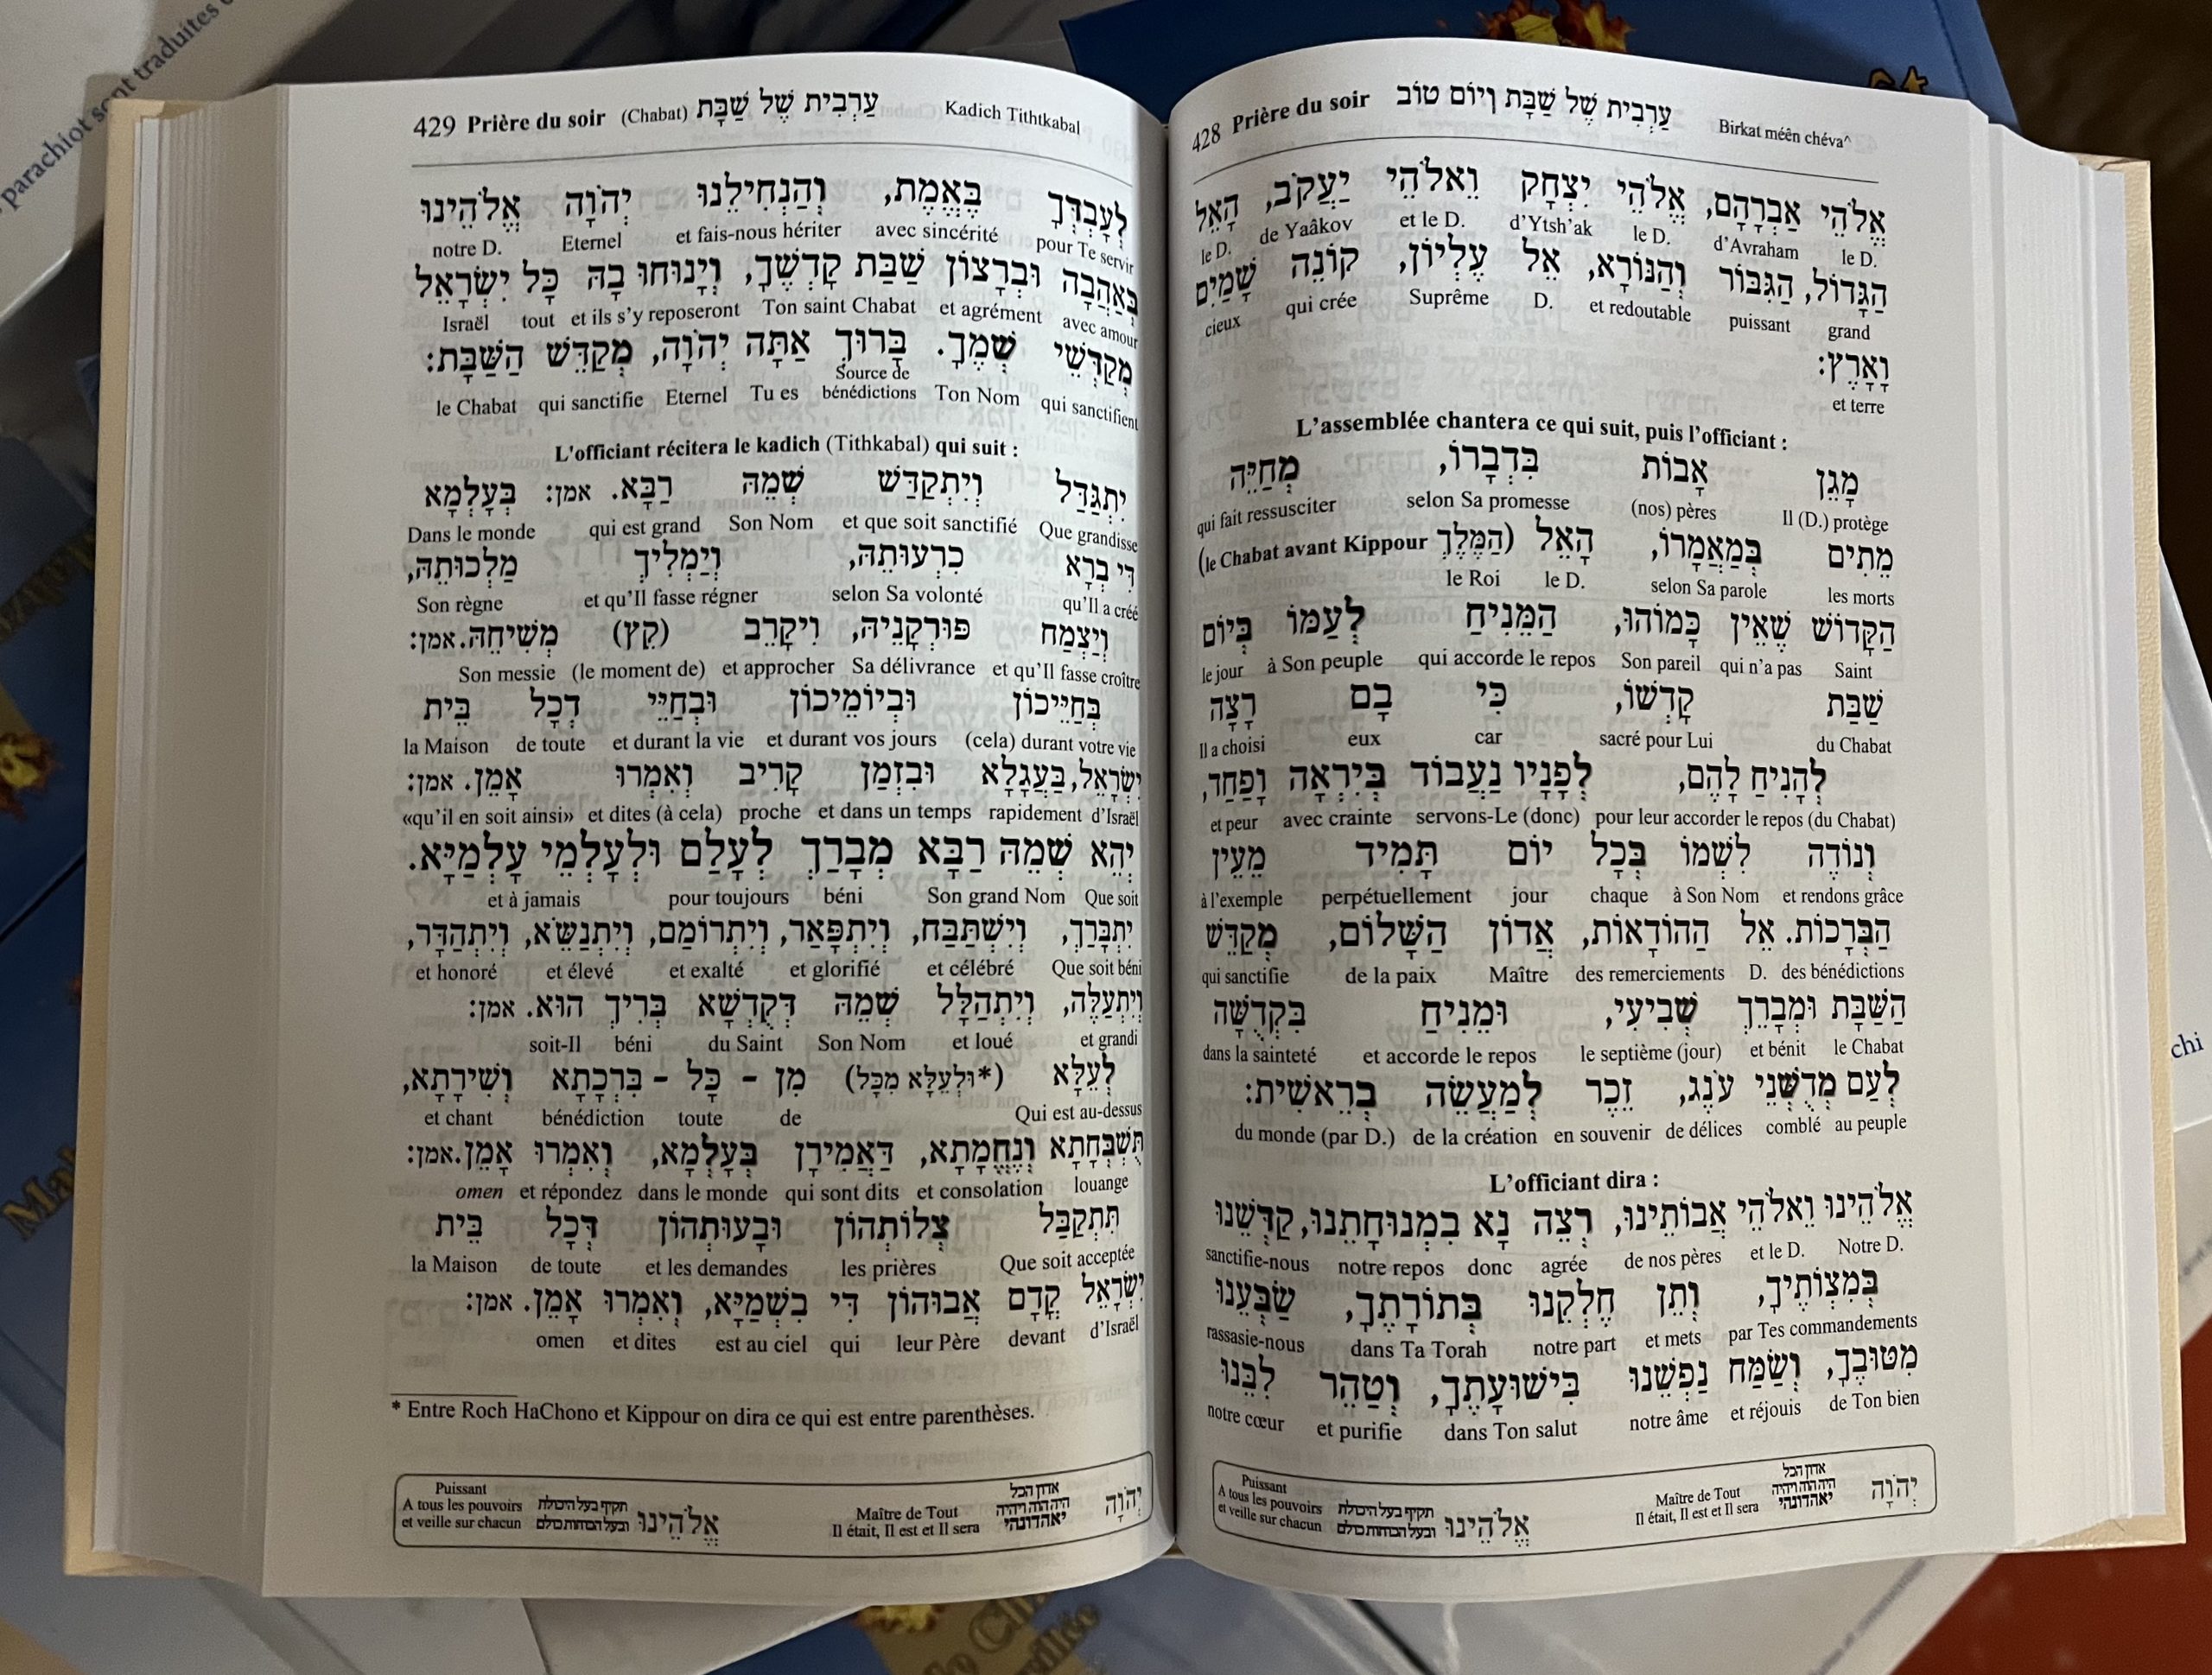 428 Prière du soir עַרְבִית שֶׁל שַׁבָּת וְיוֹם טוֹב Birkat méên chéva^
אֱלֹהֵי אַבְרָהָם, אֱלֹהֵי יִצְחָק וֵאלֹהֵי יַעֲקֹב, הָאֵל
le D. d'Avraham le D. d'Ytsh'ak et le D. de Yaâkov le D.
הַגָּדוֹל, הַגִּבּוֹר וְהַנּוֹרָא, אֵל עֶלְיוֹן, קוֹנֵה שָׁמַיִם
grand puissant et redoutable D. Suprême qui crée cieux
וָאָרֶץ:
et terre
L'assemblée chantera ce qui suit, puis l'officiant :
מָגֵן אָבוֹת בִּדְבָרוֹ, מְחַיֵּה
Il (D.) protège (nos) pères selon Sa promesse qui fait ressusciter
מֵתִים בְּמַאֲמָרוֹ, הָאֵל (הַמֶּלֶךְ le Chabat avant Kippour)
les morts selon Sa parole le D. le Roi
הַקָּדוֹשׁ שֶׁאֵין כָּמוֹהוּ, הַמֵּנִיחַ לְעַמּוֹ בְּיוֹם
Saint qui n'a pas Son pareil qui accorde le repos à Son peuple le jour
שַׁבַּת קָדְשׁוֹ, כִּי בָם רָצָה
du Chabat sacré pour Lui car eux Il a choisi
לְהָנִיחַ לָהֶם, לְפָנָיו נַעֲבוֹד בְּיִרְאָה וָפַחַד,
pour leur accorder le repos (du Chabat) servons-Le (donc) avec crainte et peur
וְנוֹדֶה לִשְׁמוֹ בְּכָל יוֹם תָּמִיד מֵעֵין
et rendons grâce à Son Nom chaque jour perpétuellement à l'exemple
הַבְּרָכוֹת. אֵל הַהוֹדָאוֹת, אֲדוֹן הַשָּׁלוֹם, מְקַדֵּשׁ
des bénédictions D. des remerciements Maître de la paix qui sanctifie
הַשַּׁבָּת וּמְבָרֵךְ שְׁבִיעִי, וּמֵנִיחַ בִּקְדֻשָּׁה
le Chabat et bénit le septième (jour) et accorde le repos dans la sainteté
לְעַם מְדֻשְּׁנֵי עֹנֶג, זֵכֶר לְמַעֲשֵׂה בְרֵאשִׁית:
au peuple comblé de délices en souvenir de la création du monde (par D.)
L'officiant dira :
אֱלֹהֵינוּ וֵאלֹהֵי אֲבוֹתֵינוּ, רְצֵה נָא בִמְנוּחָתֵנוּ, קַדְּשֵׁנוּ
Notre D. et le D. de nos pères agrée donc notre repos sanctifie-nous
בְּמִצְוֹתֶיךָ, וְתֵן חֶלְקֵנוּ בְּתוֹרָתֶךָ, שַׂבְּעֵנוּ
par Tes commandements et mets notre part dans Ta Torah rassasie-nous
מִטּוּבֶךָ, וְשַׂמַּח נַפְשֵׁנוּ בִּישׁוּעָתֶךָ, וְטַהֵר לִבֵּנוּ
de Ton bien et réjouis notre âme dans Ton salut et purifie notre cœur
יְהֹוָה
אדון הכל
היה הוה ויהיה
יאהדונהי
Maître de Tout
Il était, Il est et Il sera
אֱלֹהֵינוּ
תקיף בעל היכולת
ובעל הכוחות כולם
Puissant
A tous les pouvoirs
et veille sur chacun
429 Prière du soir (Chabat) עַרְבִית שֶׁל שַׁבָּת Kadich Tithtkabal
לְעָבְדְּךָ בֶּאֱמֶת, וְהַנְחִילֵנוּ יְהֹוָה אֱלֹהֵינוּ
pour Te servir avec sincérité et fais-nous hériter Eternel notre D.
בְּאַהֲבָה וּבְרָצוֹן שַׁבַּת קָדְשֶׁךָ, וְיָנוּחוּ בָהּ כָּל יִשְׂרָאֵל
avec amour et agrément Ton saint Chabat et ils s'y reposeront tout Israël
מְקַדְּשֵׁי שְׁמֶךָ. בָּרוּךְ אַתָּה יְהֹוָה, מְקַדֵּשׁ הַשַּׁבָּת:
qui sanctifient Ton Nom Source de bénédictions Tu es Eternel qui sanctifie le Chabat
L'officiant récitera le kadich (Tithkabal) qui suit :
יִתְגַּדַּל וְיִתְקַדַּשׁ שְׁמֵהּ רַבָּא. אמן: בְּעָלְמָא
Que grandisse et que soit sanctifié Son Nom qui est grand Dans le monde
דִּי בְרָא כִרְעוּתֵהּ, וְיַמְלִיךְ מַלְכוּתֵהּ,
qu'Il a créé selon Sa volonté et qu'Il fasse régner Son règne
וְיַצְמַח פּוּרְקָנֵיהּ, וִיקָרֵב (קֵץ) מְשִׁיחֵהּ. אמן:
et qu'Il fasse croître Sa délivrance et approcher (le moment de) Son messie
בְּחַיֵּיכוֹן וּבְיוֹמֵיכוֹן וּבְחַיֵּי דְכָל בֵּית
(cela) durant votre vie et durant vos jours et durant la vie de toute la Maison
יִשְׂרָאֵל, בַּעֲגָלָא וּבִזְמַן קָרִיב וְאִמְרוּ אָמֵן. אמן:
d'Israël rapidement et dans un temps proche et dites (à cela) «qu'il en soit ainsi»
יְהֵא שְׁמֵהּ רַבָּא מְבָרַךְ לְעָלַם וּלְעָלְמֵי עָלְמַיָּא.
Que soit Son grand Nom béni pour toujours et à jamais
יִתְבָּרַךְ, וְיִשְׁתַּבַּח, וְיִתְפָּאַר, וְיִתְרוֹמַם, וְיִתְנַשֵּׂא, וְיִתְהַדָּר,
Que soit béni et célébré et glorifié et exalté et élevé et honoré
וְיִתְעַלֶּה, וְיִתְהַלָּל שְׁמֵהּ דְּקֻדְשָׁא בְּרִיךְ הוּא. אמן:
et grandi et loué Son Nom du Saint béni soit-Il
לְעֵלָּא (*וּלְעֵלָּא מִכָּל) מִן - כָּל - בִּרְכָתָא וְשִׁירָתָא,
Qui est au-dessus de toute bénédiction et chant
תֻּשְׁבְּחָתָא וְנֶחֱמָתָא, דַּאֲמִירָן בְּעָלְמָא, וְאִמְרוּ אָמֵן. אמן:
louange et consolation qui sont dits dans le monde et répondez omen
תִּתְקַבַּל צְלוֹתְהוֹן וּבָעוּתְהוֹן דְּכָל בֵּית
Que soit acceptée les prières et les demandes de toute la Maison
יִשְׂרָאֵל קֳדָם אֲבוּהוֹן דִּי בִשְׁמַיָּא, וְאִמְרוּ אָמֵן. אמן:
d'Israël devant leur Père qui est au ciel et dites omen
* Entre Roch HaChono et Kippour on dira ce qui est entre parenthèses.
יְהֹוָה
אדון הכל
היה הוה ויהיה
יאהדונהי
Maître de Tout
Il était, Il est et Il sera
אֱלֹהֵינוּ
תקיף בעל היכולת
ובעל הכוחות כולם
Puissant
A tous les pouvoirs
et veille sur chacun
parachiot sont traduites
chi